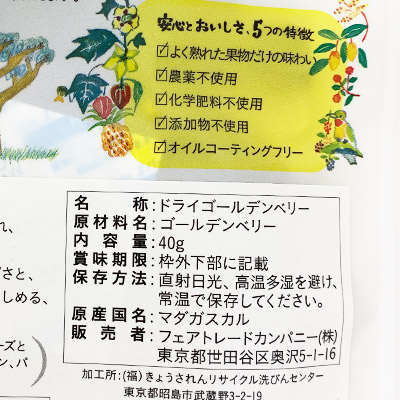 安心とおいしさ、5つの特徴
☑よく熟れた果物だけの味わい
☑農薬不使用
☑化学肥料不使用
☑添加物不使用
☑オイルコーティングフリー
れ、
さと、
しめる、
ーズと
ン、パ
名称:ドライゴールデンベリー
原材料名:ゴールデンベリー
内容量:40g
賞味期限:枠外下部に記載
保存方法:直射日光、高温多湿を避け、
常温で保存してください。
原産国名:マダガスカル
販売者:フェアトレードカンパニー(株)
東京都世田谷区奥沢5-1-16
加工所:(福)きょうされんリサイクル洗びんセンター
東京都昭島市武蔵野3-2-19